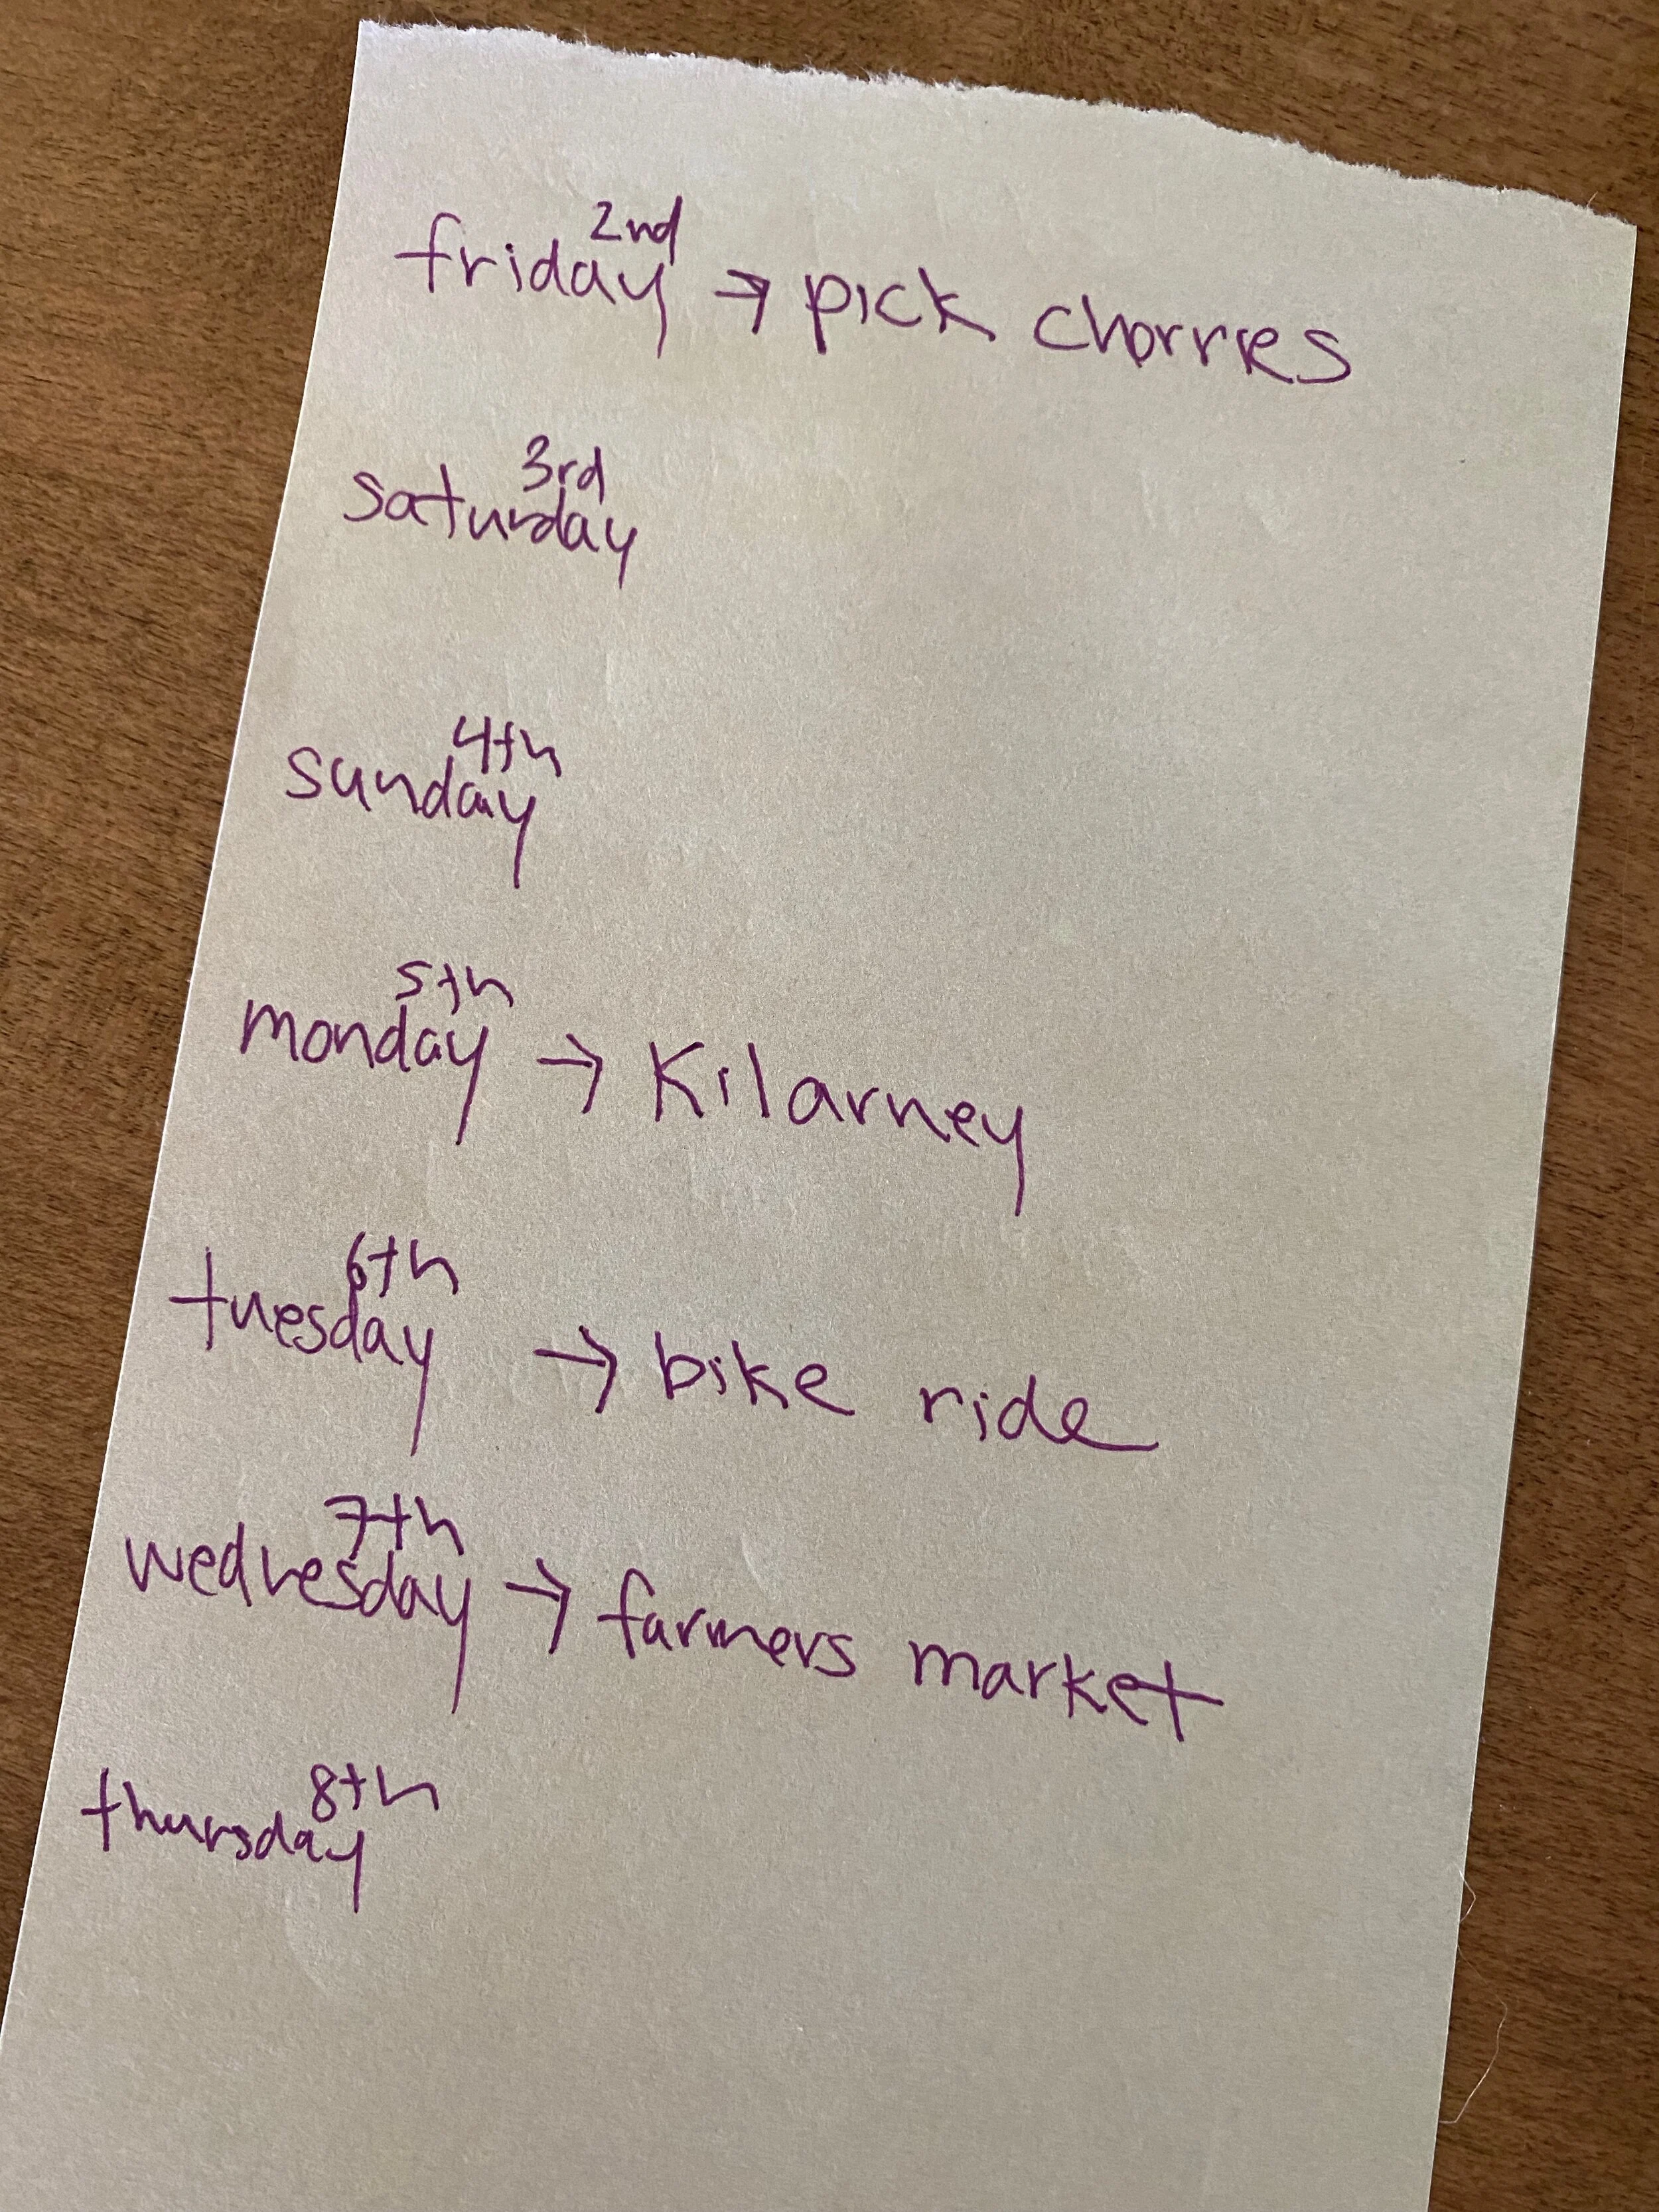 friday 2nd → pick cherries
saturday 3rd
sunday 4th
monday 5th → Kilarney
tuesday 6th → bike ride
wednesday 7th → farmers market
thursday 8th